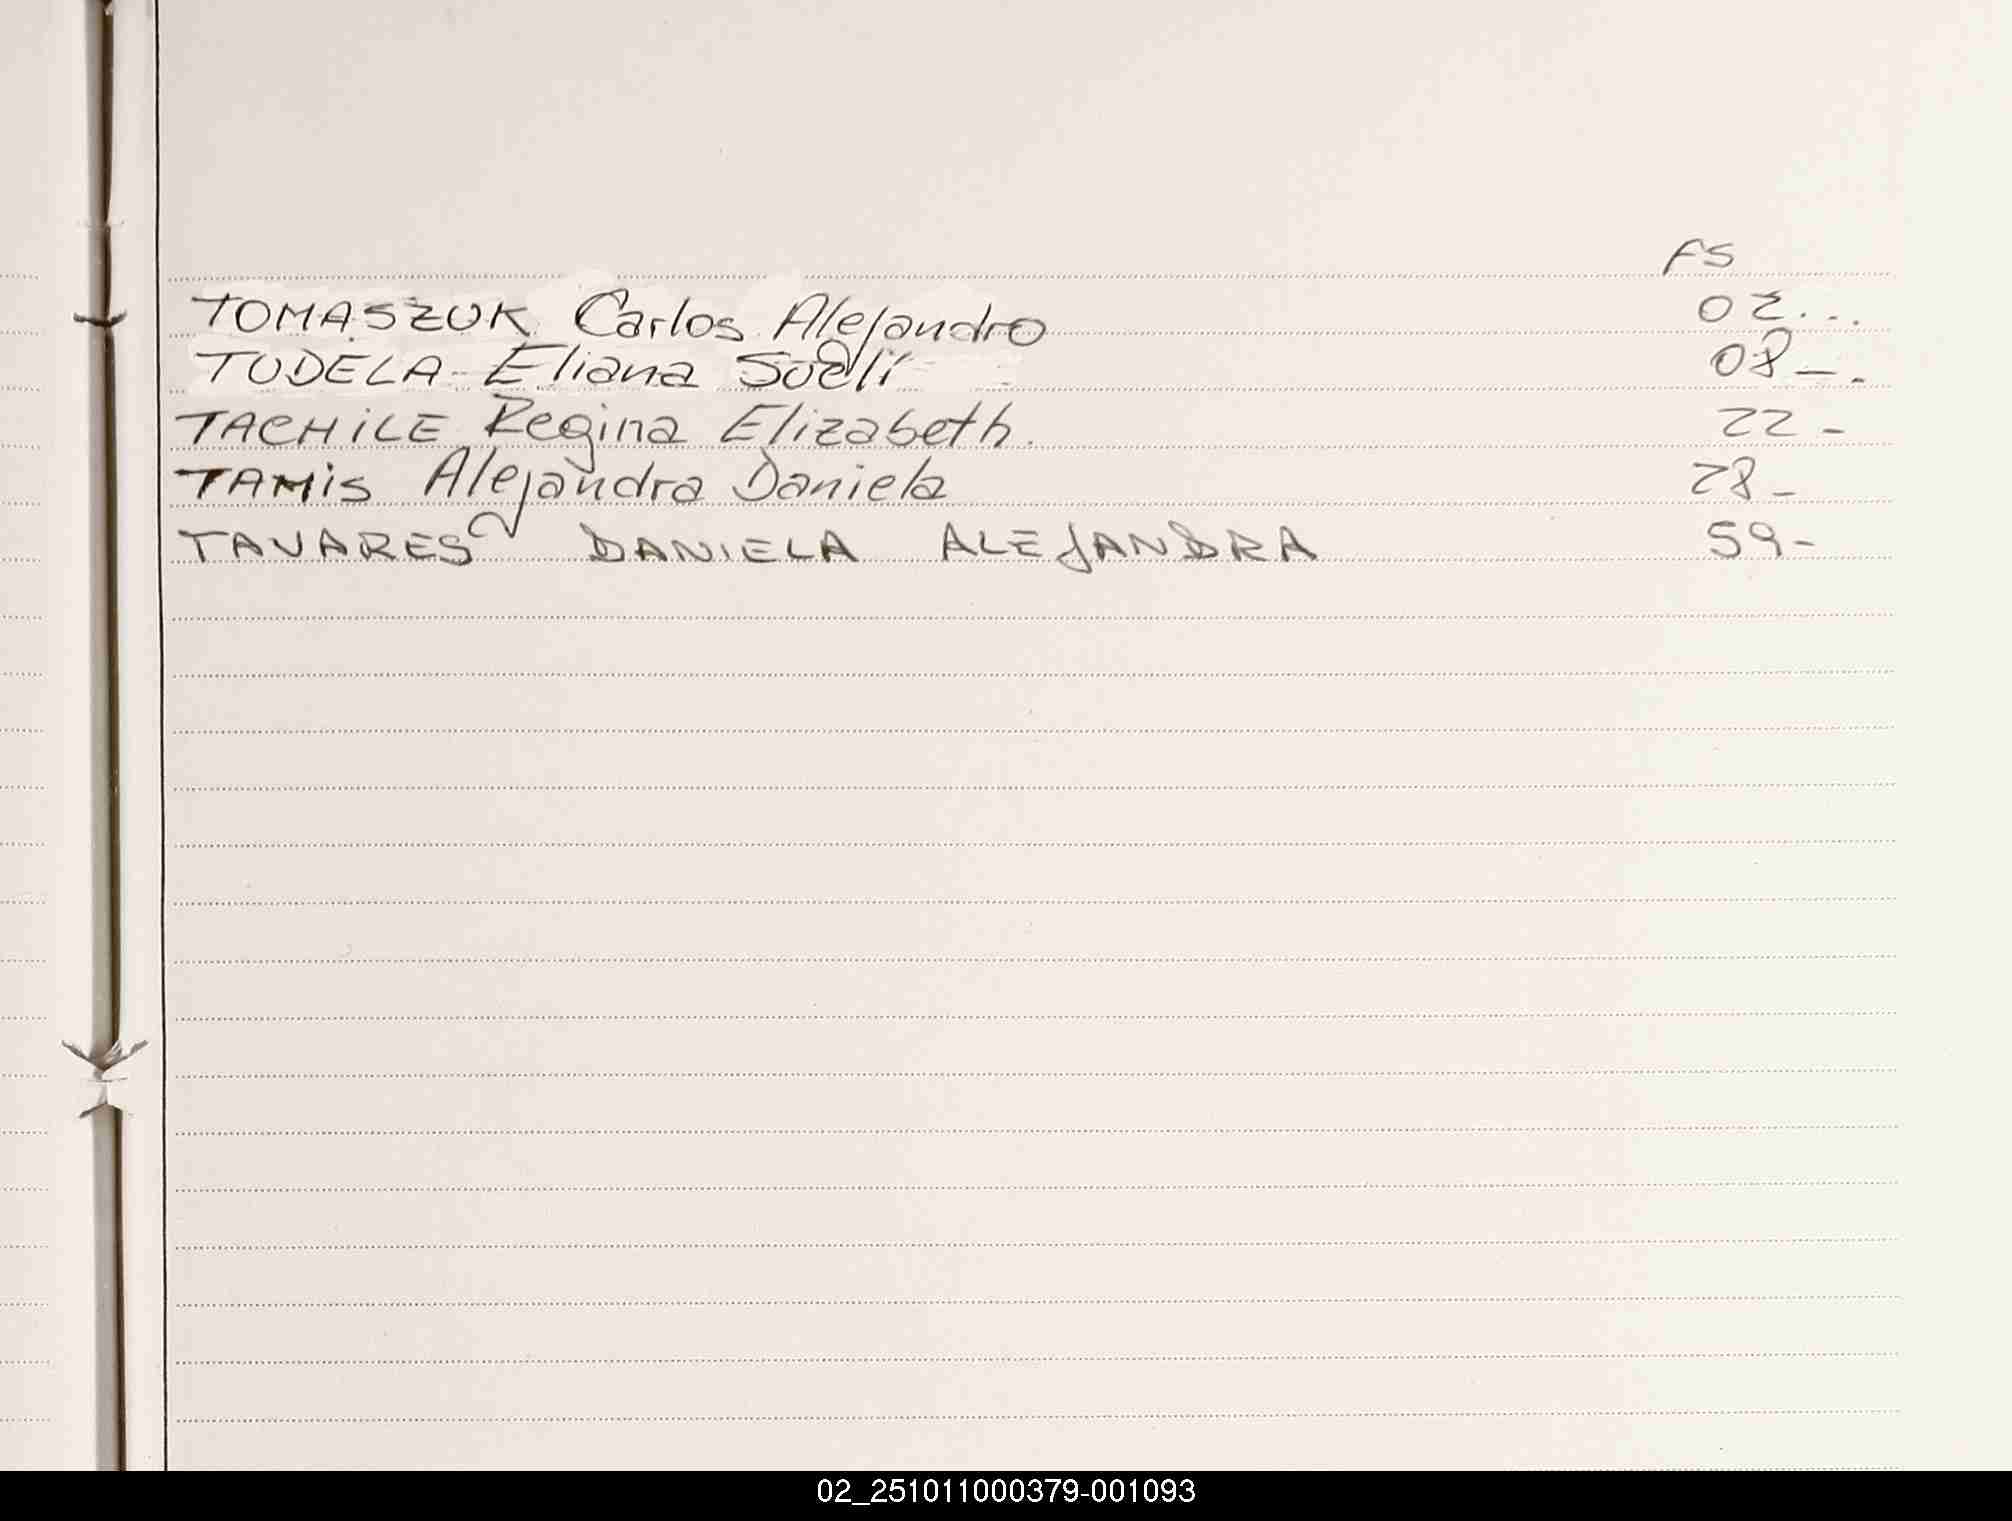 FS
TOMASZUK Carlos Alejandro 02...
TUDELA Eliana Suèli 08 - -
TACHiLE Regina Elizabeth. 22 -
TAMiS Alejandra Daniela 28 -
TAVARES DANIELA ALEJANDRA 59 -
02_251011000379-001093